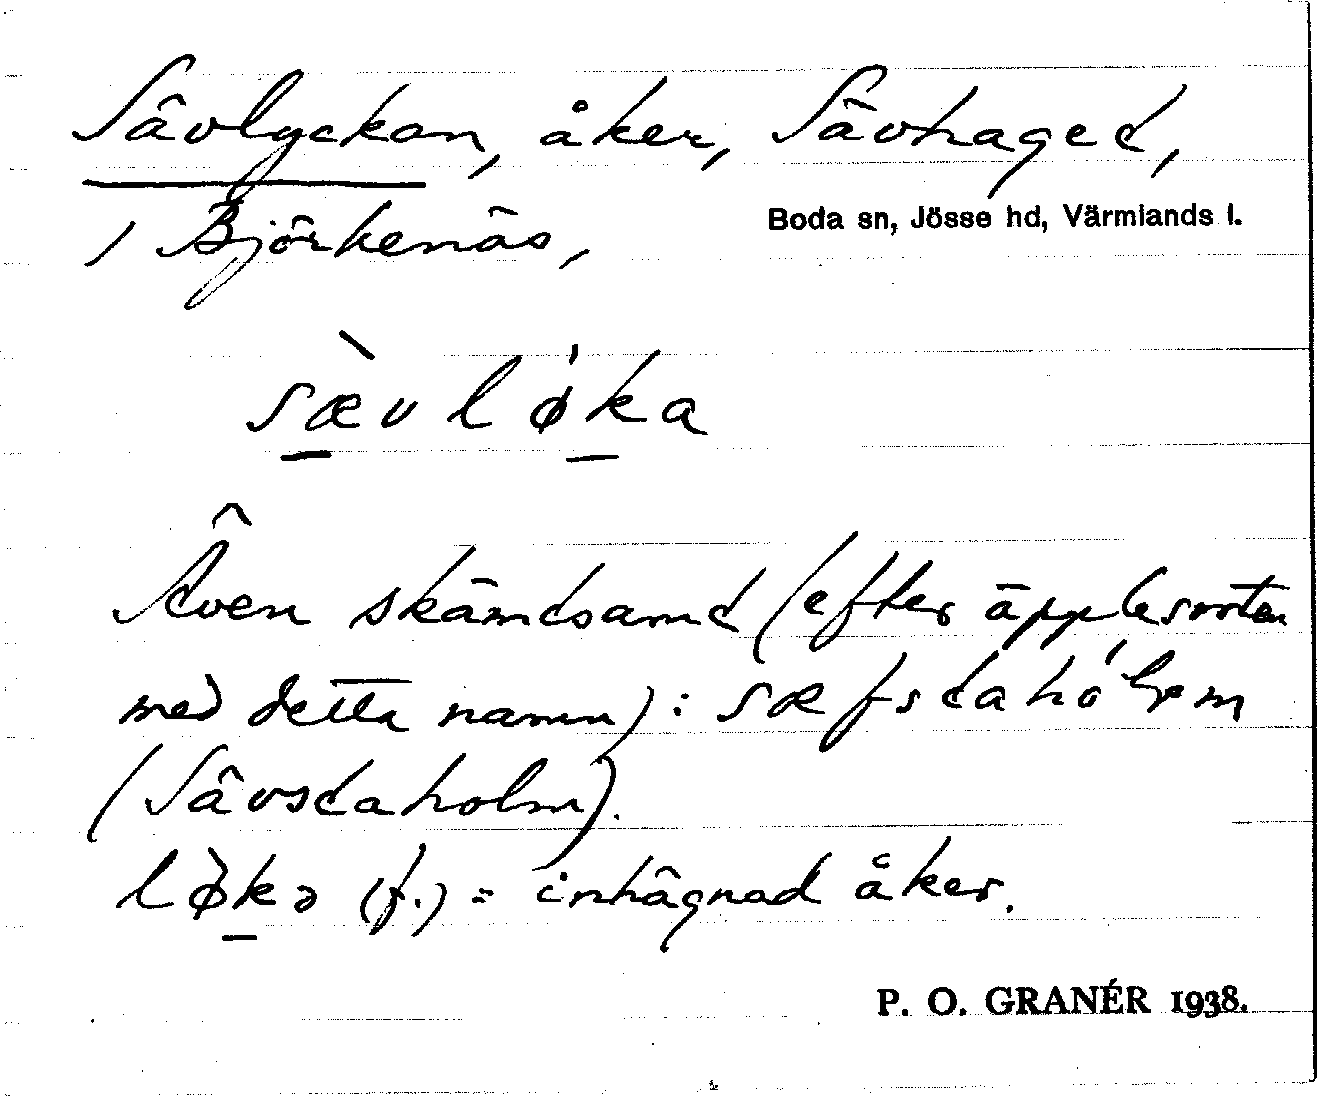 Sävlyckan, åker, Sävhaged,
1 Björkenäs,
Boda sn, Jösse hd, Värmlands l.
sæ̀vlǿka
Även skämdsamd (efter äpplesorten
med detta namn): sæfsdahólm
(Sävsdaholm).
lø̀kə (f.) = inhägnad åker.
P. O. GRANÉR 1938.